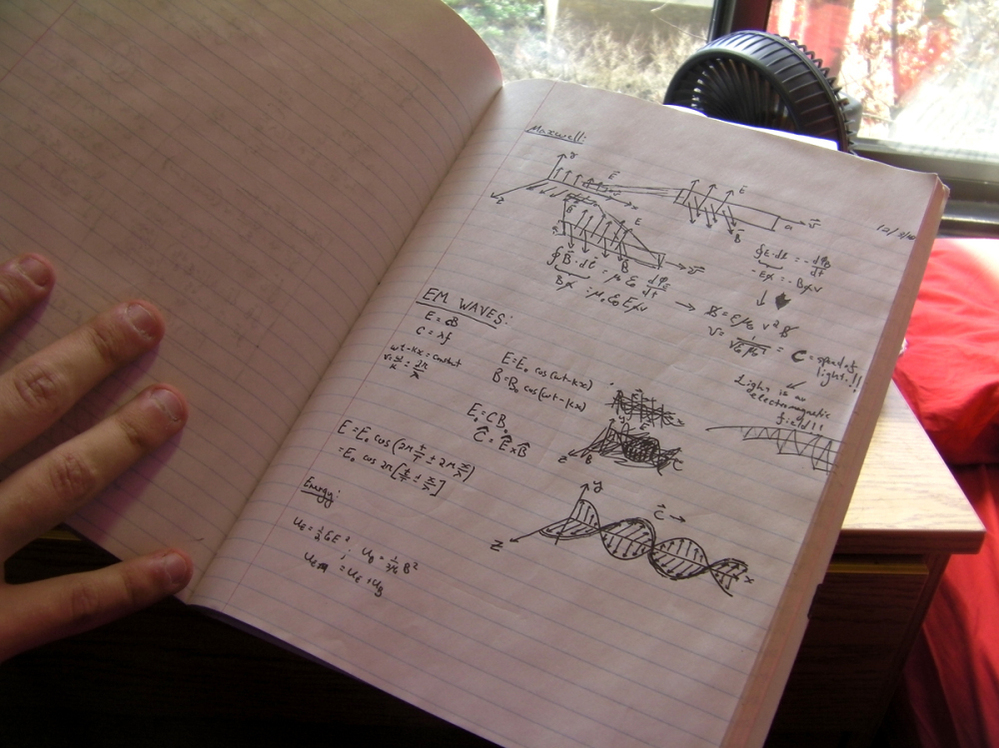 Maxwell:
y
E
x
z
B
E
B
a
v⃗
E
B
a
v⃗
∮E·dℓ = -dΦB/dt
-Eα = -Bαv
∮B⃗·dℓ⃗ = μ₀ε₀ dΦE/dt
Bα = μ₀ε₀Eαv
→ B = εμ₀ v² B
v = 1/√ε₀μ₀ = C = speed of
light!!
Light is an
electromagnetic
field!!
EM WAVES:
E = cB
C = λf
wt - kx = constant
E = E₀ cos(wt-kx)
B = B₀ cos(wt-kx)
E₀ = CB₀
Ĉ = Ê × B̂
E = E₀ cos(2π t/T ± 2π x/λ)
= E₀ cos 2π[t/T ± x/λ]
z
B
y
E
y
C⃗ →
z
x
Energy:
uE = ½ εE² ; uB = 1/2μ B²
uEM = uE + uB